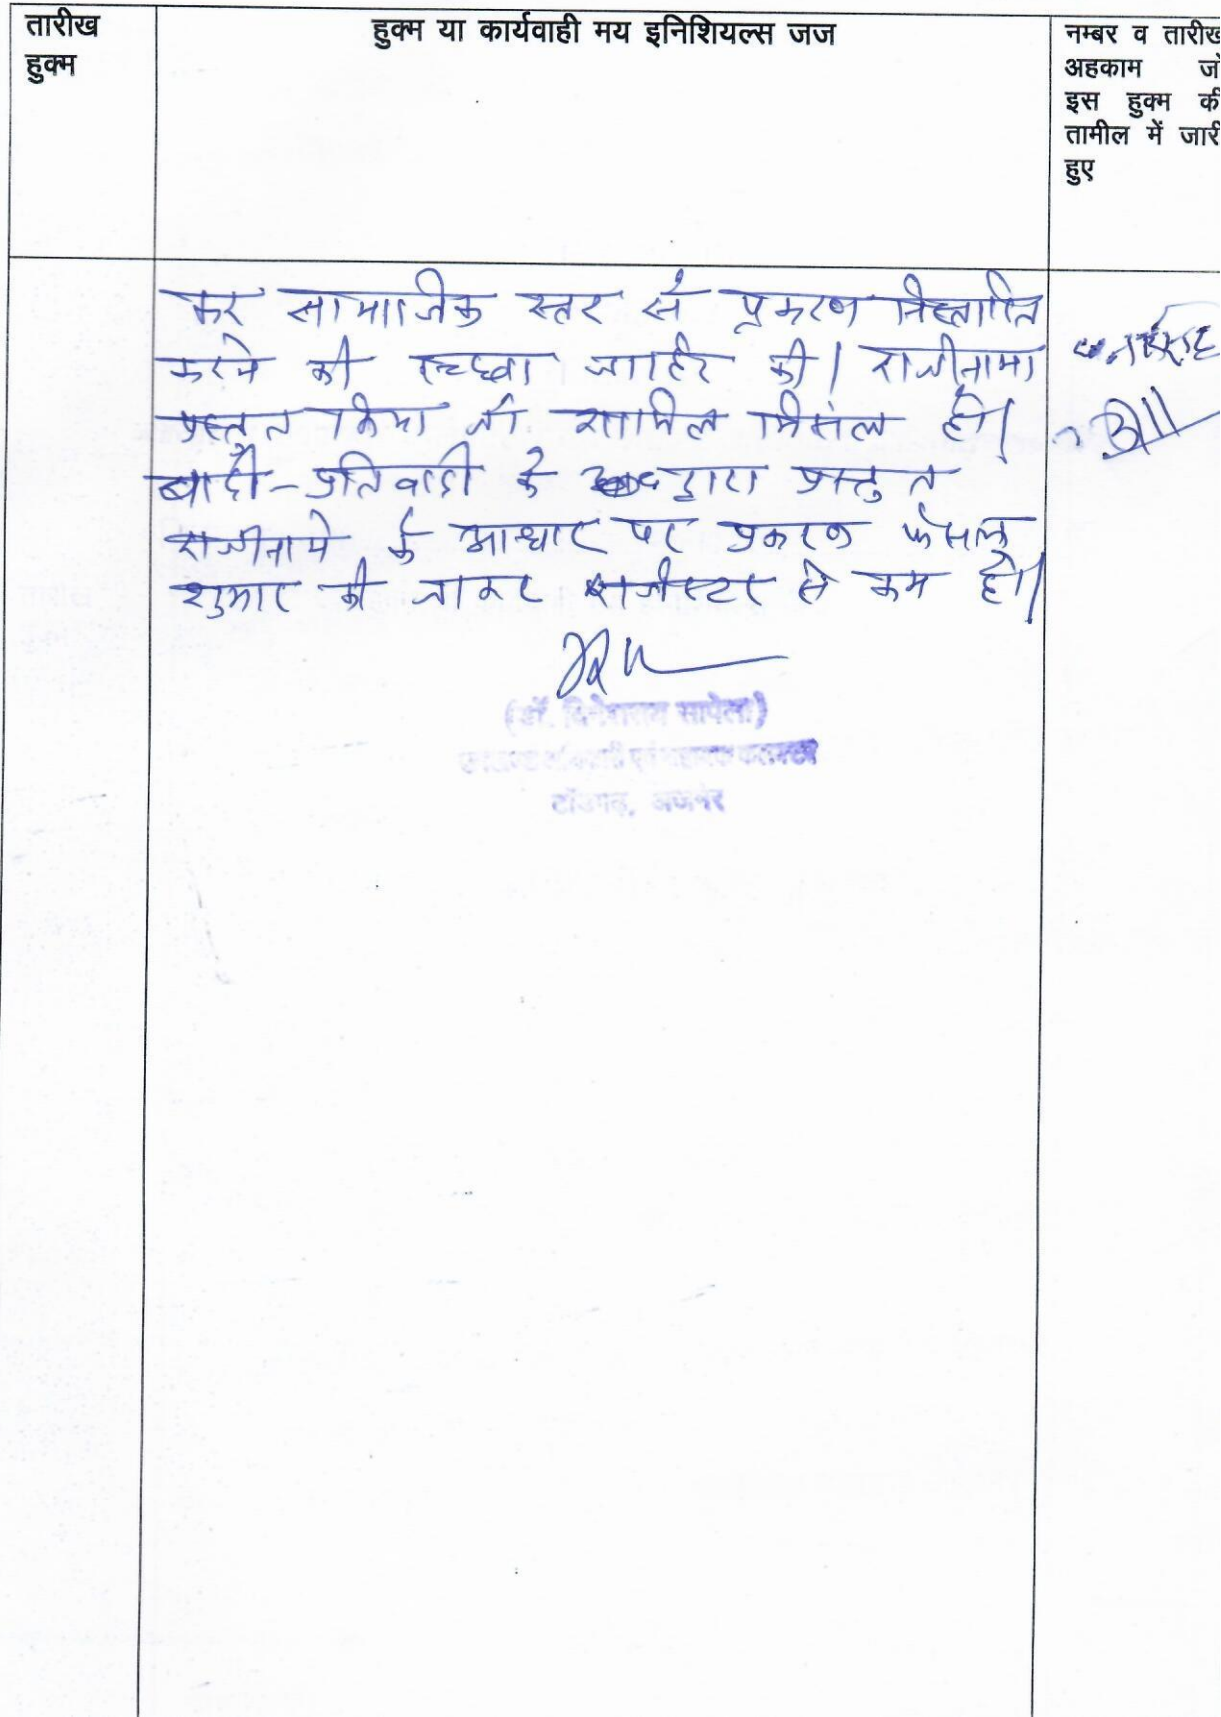 तारीख
हुक्म
हुक्म या कार्यवाही मय इनिशियल्स जज
नम्बर व तारीख
अहकाम जो
इस हुक्म की
तामील में जारी
हुए
कर सामाजिक स्तर से प्रकरण निस्तारित
करने की इच्छा जाहिर की। राजीनामा
प्रस्तुत किया जो शामिल मिसल हो।
वादी-प्रतिवादी के द्वारा प्रस्तुत
राजीनामे के आधार पर प्रकरण फैसल
शुमार की जाकर रजिस्टर से कम हो।
(डॉ. दिनेशराय सापेला)
उपखण्ड अधिकारी एवं सहायक कलक्टर
टॉडगढ़, अजमेर